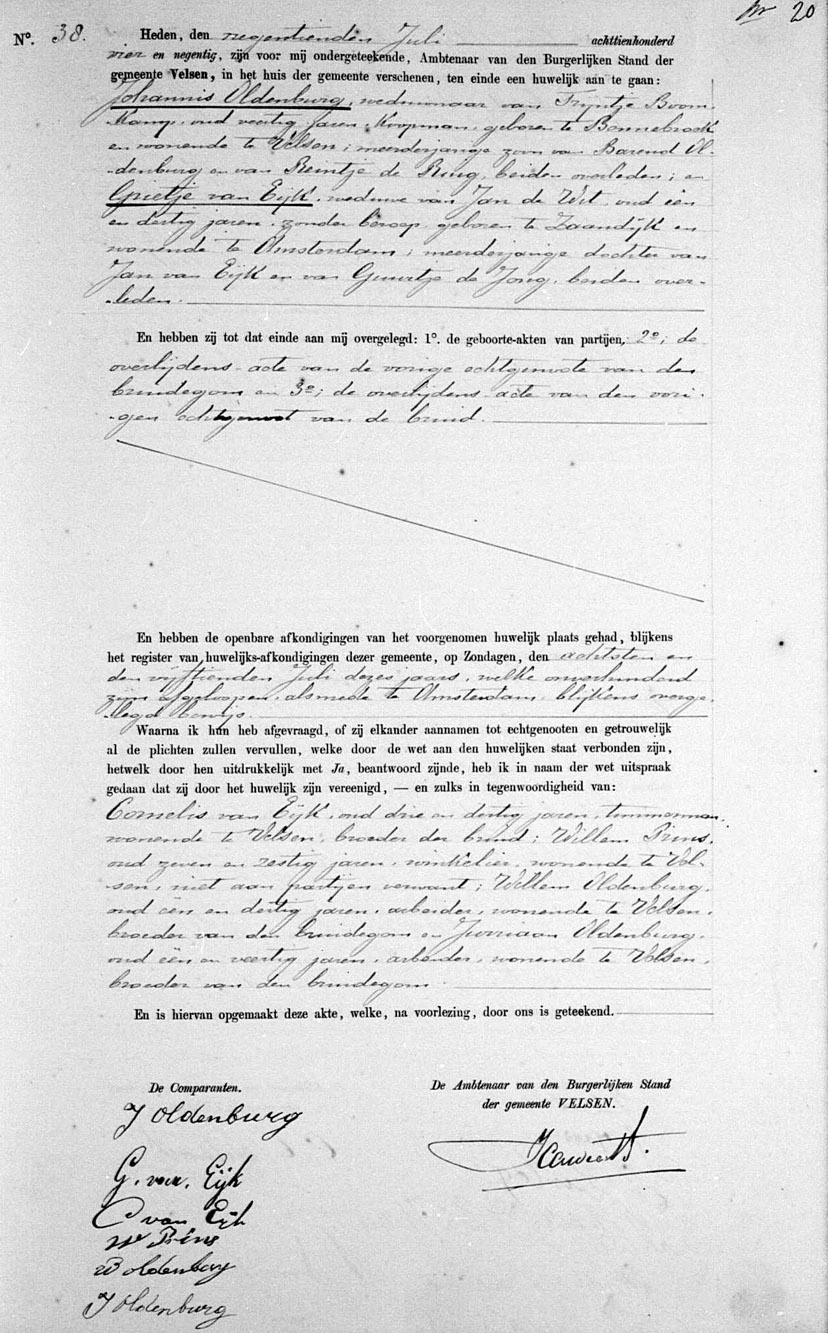 Nr 20
N°. 38.
Heden, den negentienden Juli achttienhonderd
vier en negentig, zijn voor mij ondergeteekende, Ambtenaar van den Burgerlijken Stand der
gemeente Velsen, in het huis der gemeente verschenen, ten einde een huwelijk aan te gaan:
Johannis Oldenburg, weduwnaar van Trijntje Boom-
kamp, oud veertig jaren, Koopman, geboren te Bennebroek
en wonende te Velsen; meerderjarige zoon van Barend Ol-
denburg en van Reintje de Ruig, beiden overleden; en
Grietje van Eijk, weduwe van Jan de Wit, oud één
en dertig jaren, zonder beroep, geboren te Zaandijk en
wonende te Amsterdam; meerderjarige dochter van
Jan van Eijk en van Guurtje de Jong, beiden over-
leden.
En hebben zij tot dat einde aan mij overgelegd: 1°. de geboorte-akten van partijen, 2°; de
overlijdens-acte van de vorige echtgenoote van den
bruidegom en 3°; de overlijdens-acte van den vori-
gen echtgenoot van de bruid.
En hebben de openbare afkondigingen van het voorgenomen huwelijk plaats gehad, blijkens
het register van huwelijks-afkondigingen dezer gemeente, op Zondagen, den achtsten en
den vijftienden Juli dezes jaars, welke onverhinderd
zijn afgeloopen, alsmede te Amsterdam, blijkens overge-
legd bewijs.
Waarna ik hun heb afgevraagd, of zij elkander aannamen tot echtgenooten en getrouwelijk
al de plichten zullen vervullen, welke door de wet aan den huwelijken staat verbonden zijn,
hetwelk door hen uitdrukkelijk met Ja, beantwoord zijnde, heb ik in naam der wet uitspraak
gedaan dat zij door het huwelijk zijn vereenigd, — en zulks in tegenwoordigheid van:
Cornelis van Eijk, oud drie en dertig jaren, timmerman,
wonende te Velsen, broeder der bruid; Willem Prins,
oud zeven en zestig jaren, winkelier, wonende te Vel-
sen, niet aan partijen verwant; Willem Oldenburg,
oud één en dertig jaren, arbeider, wonende te Velsen,
broeder van den bruidegom en Jurriaan Oldenburg,
oud één en veertig jaren, arbeider, wonende te Velsen,
broeder van den bruidegom.
En is hiervan opgemaakt deze akte, welke, na voorlezing, door ons is geteekend.
De Comparanten.
De Ambtenaar van den Burgerlijken Stand
der gemeente VELSEN.
J Oldenburg
G. van Eijk
C van Eijk
W Prins
W oldenburg
J Oldenburg